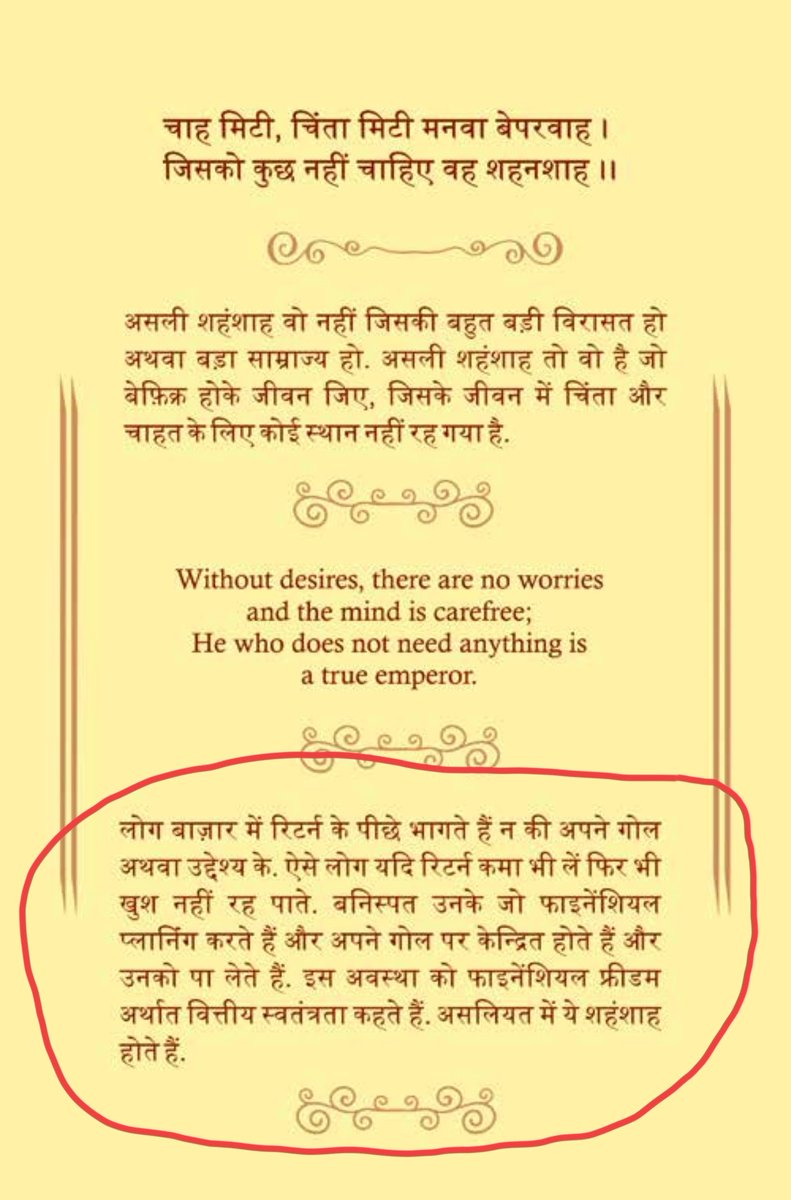 चाह मिटी, चिंता मिटी मनवा बेपरवाह ।
जिसको कुछ नहीं चाहिए वह शहनशाह ।।
असली शहंशाह वो नहीं जिसकी बहुत बड़ी विरासत हो
अथवा बड़ा साम्राज्य हो. असली शहंशाह तो वो है जो
बेफ़िक्र होके जीवन जिए, जिसके जीवन में चिंता और
चाहत के लिए कोई स्थान नहीं रह गया है.
Without desires, there are no worries
and the mind is carefree;
He who does not need anything is
a true emperor.
लोग बाज़ार में रिटर्न के पीछे भागते हैं न की अपने गोल
अथवा उद्देश्य के. ऐसे लोग यदि रिटर्न कमा भी लें फिर भी
खुश नहीं रह पाते. बनिस्पत उनके जो फाइनेंशियल
प्लानिंग करते हैं और अपने गोल पर केन्द्रित होते हैं और
उनको पा लेते हैं. इस अवस्था को फाइनेंशियल फ्रीडम
अर्थात वित्तीय स्वतंत्रता कहते हैं. असलियत में ये शहंशाह
होते हैं.